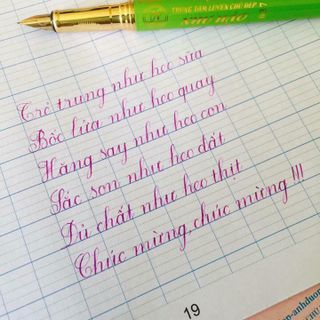 TRUNG TÂM LUYỆN CHỮ ĐẸP
Trẻ trung như heo sữa
Bốc lửa như heo quay
Hăng say như heo con
Sắc son như heo đất
Đủ chất như heo thịt
Chúc mừng, chúc mừng !!!
19